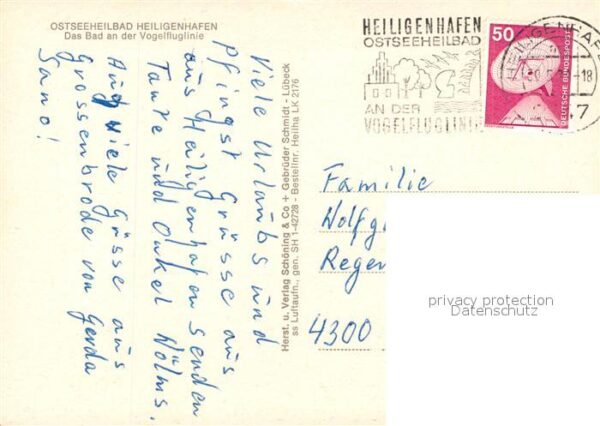 OSTSEEHEILBAD HEILIGENHAFEN
Das Bad an der Vogelfluglinie
Viele Urlaubs und
Pfingst Grüsse aus
aus Heiligenhafen senden
Tante und Onkel Wölms.
Auch viele Grüsse aus
Grossenbrode von Gerda
Herst. u. Verlag Schöning & Co + Gebrüder Schmidt - Lübeck
ss Luftaufn., gen. SH 1-42728 - Bestellnr. Heilha LK 2176
HEILIGENHAFEN
OSTSEEHEILBAD
AN DER
VOGELFLUGLINIE
50
DEUTSCHE BUNDESPOST
HEILIGENHAFE
-18
7
Familie
Wolfg
Regen
4300
privacy protection
Datenschutz